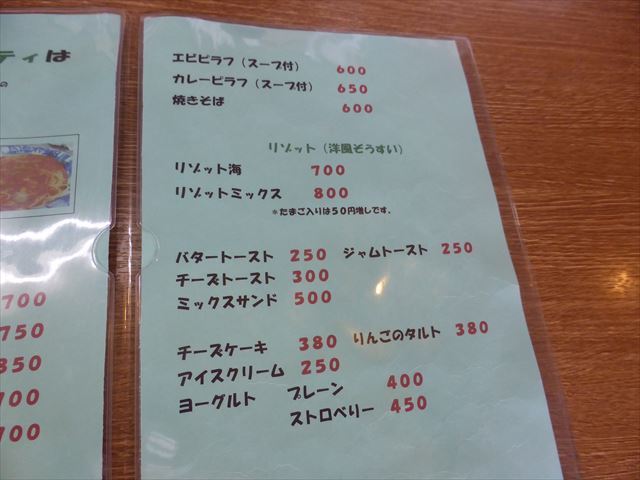 ティは
の
700
750
850
700
700
エビピラフ（スープ付） 600
カレーピラフ（スープ付） 650
焼きそば 600
リゾット（洋風ぞうすい）
リゾット海 700
リゾットミックス 800
＊たまご入りは50円増しです．
バタートースト 250 ジャムトースト 250
チーズトースト 300
ミックスサンド 500
チーズケーキ 380 りんごのタルト 380
アイスクリーム 250
ヨーグルト プレーン 400
ストロベリー 450